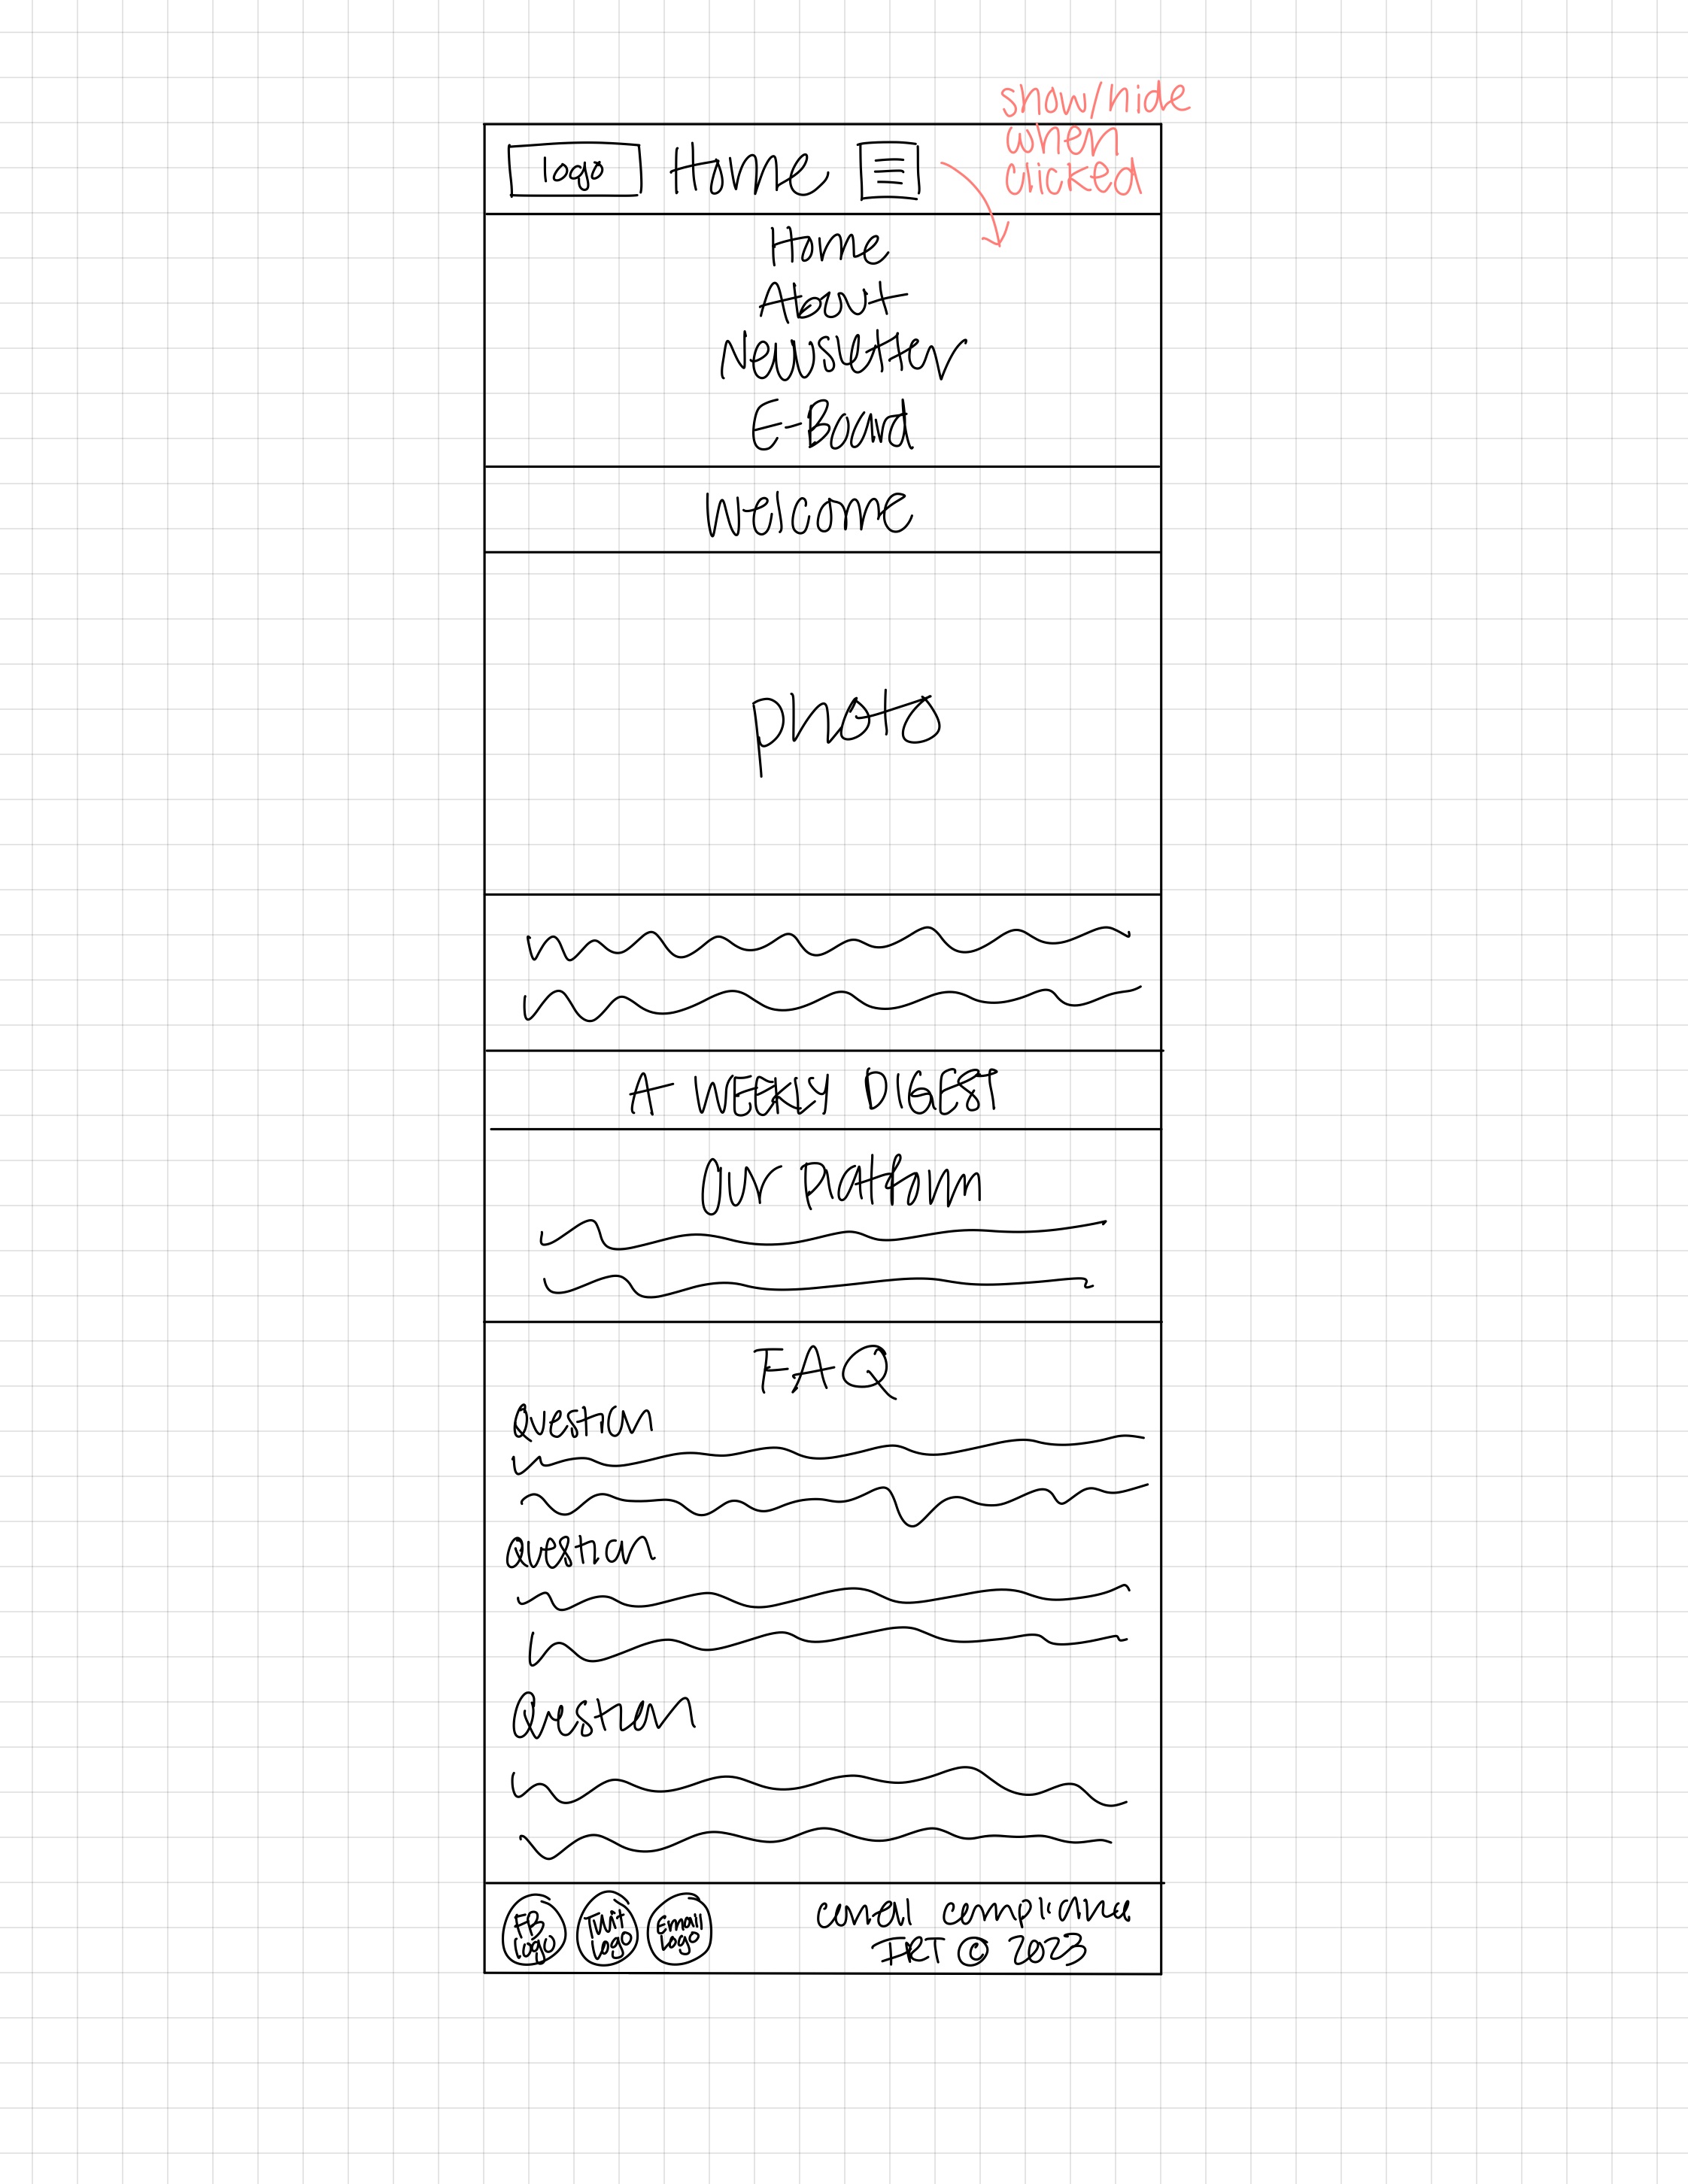 show/hide
when
clicked
logo Home
Home
About
Newsletter
E-Board
Welcome
photo
A WEEKLY DIGEST
Our Platform
FAQ
Question
Question
Question
FB Logo
Twit Logo
Email Logo
compliance
© 2023